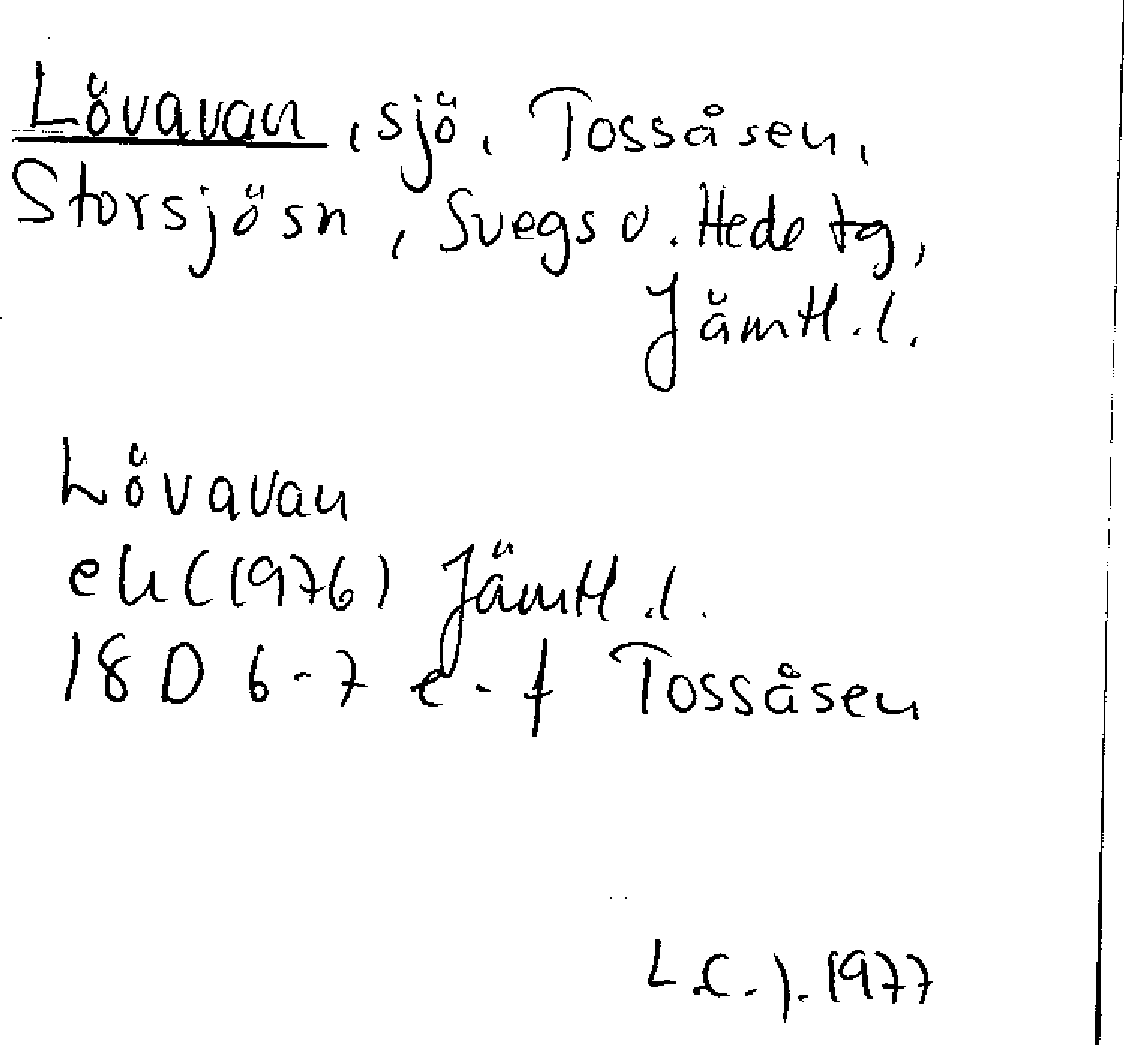 Lövavan, sjö, Tossåsen,
Storsjösn, Svegs o. Hede tg,
Jämtl. l.
Lövavan
ek (1976) Jämtl. l.
18 D 6-7 e-f Tossåsen
L.C.J. 1977